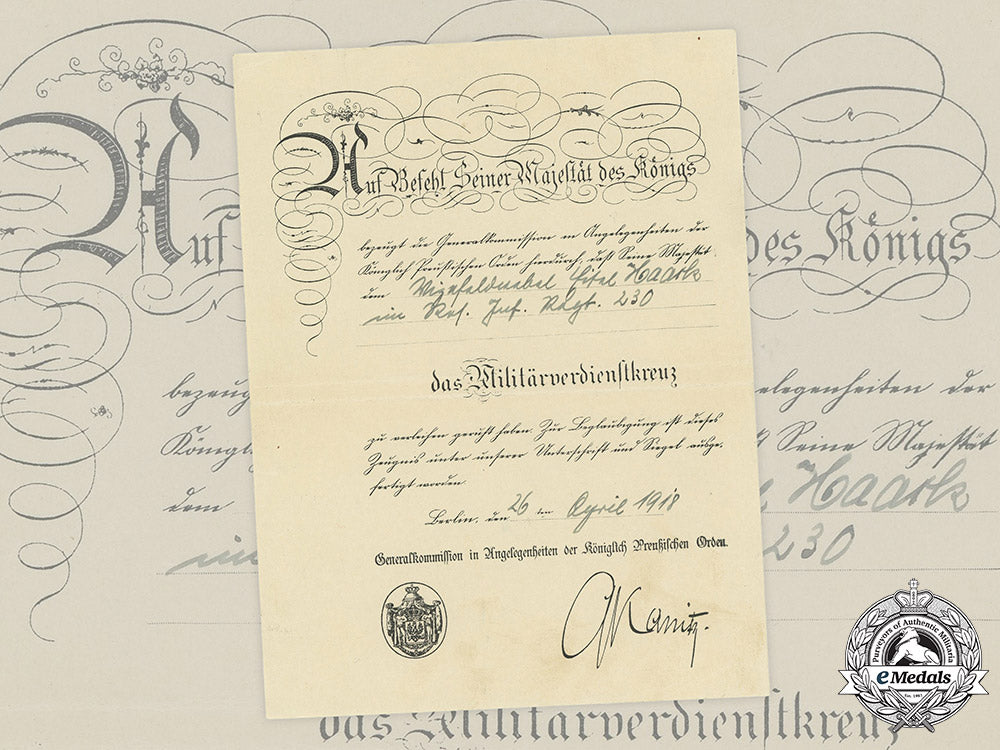 Auf Befehl Seiner Majestät des Königs
bezeugt die Generalkommission in Angelegenheiten der
Königlich Preußischen Orden hierdurch, daß Seine Majestät
dem Vizefeldwebel Eitel Haack
im Res. Inf. Regt. 230
das Militärverdienstkreuz
zu verleihen geruht haben. Zur Beglaubigung ist dieses
Zeugnis unter unserer Unterschrift und Siegel ausge-
fertigt worden
Berlin, den 26 ten April 1918
Generalkommission in Angelegenheiten der Königlich Preußischen Orden.
Kanitz.
uf
des Königs
bezeug
elegenheiten der
Königl
Seine Majestät
dem
Haack
im
230
das Militärverdienstkreuz
Purveyors of Authentic Militaria
eMedals